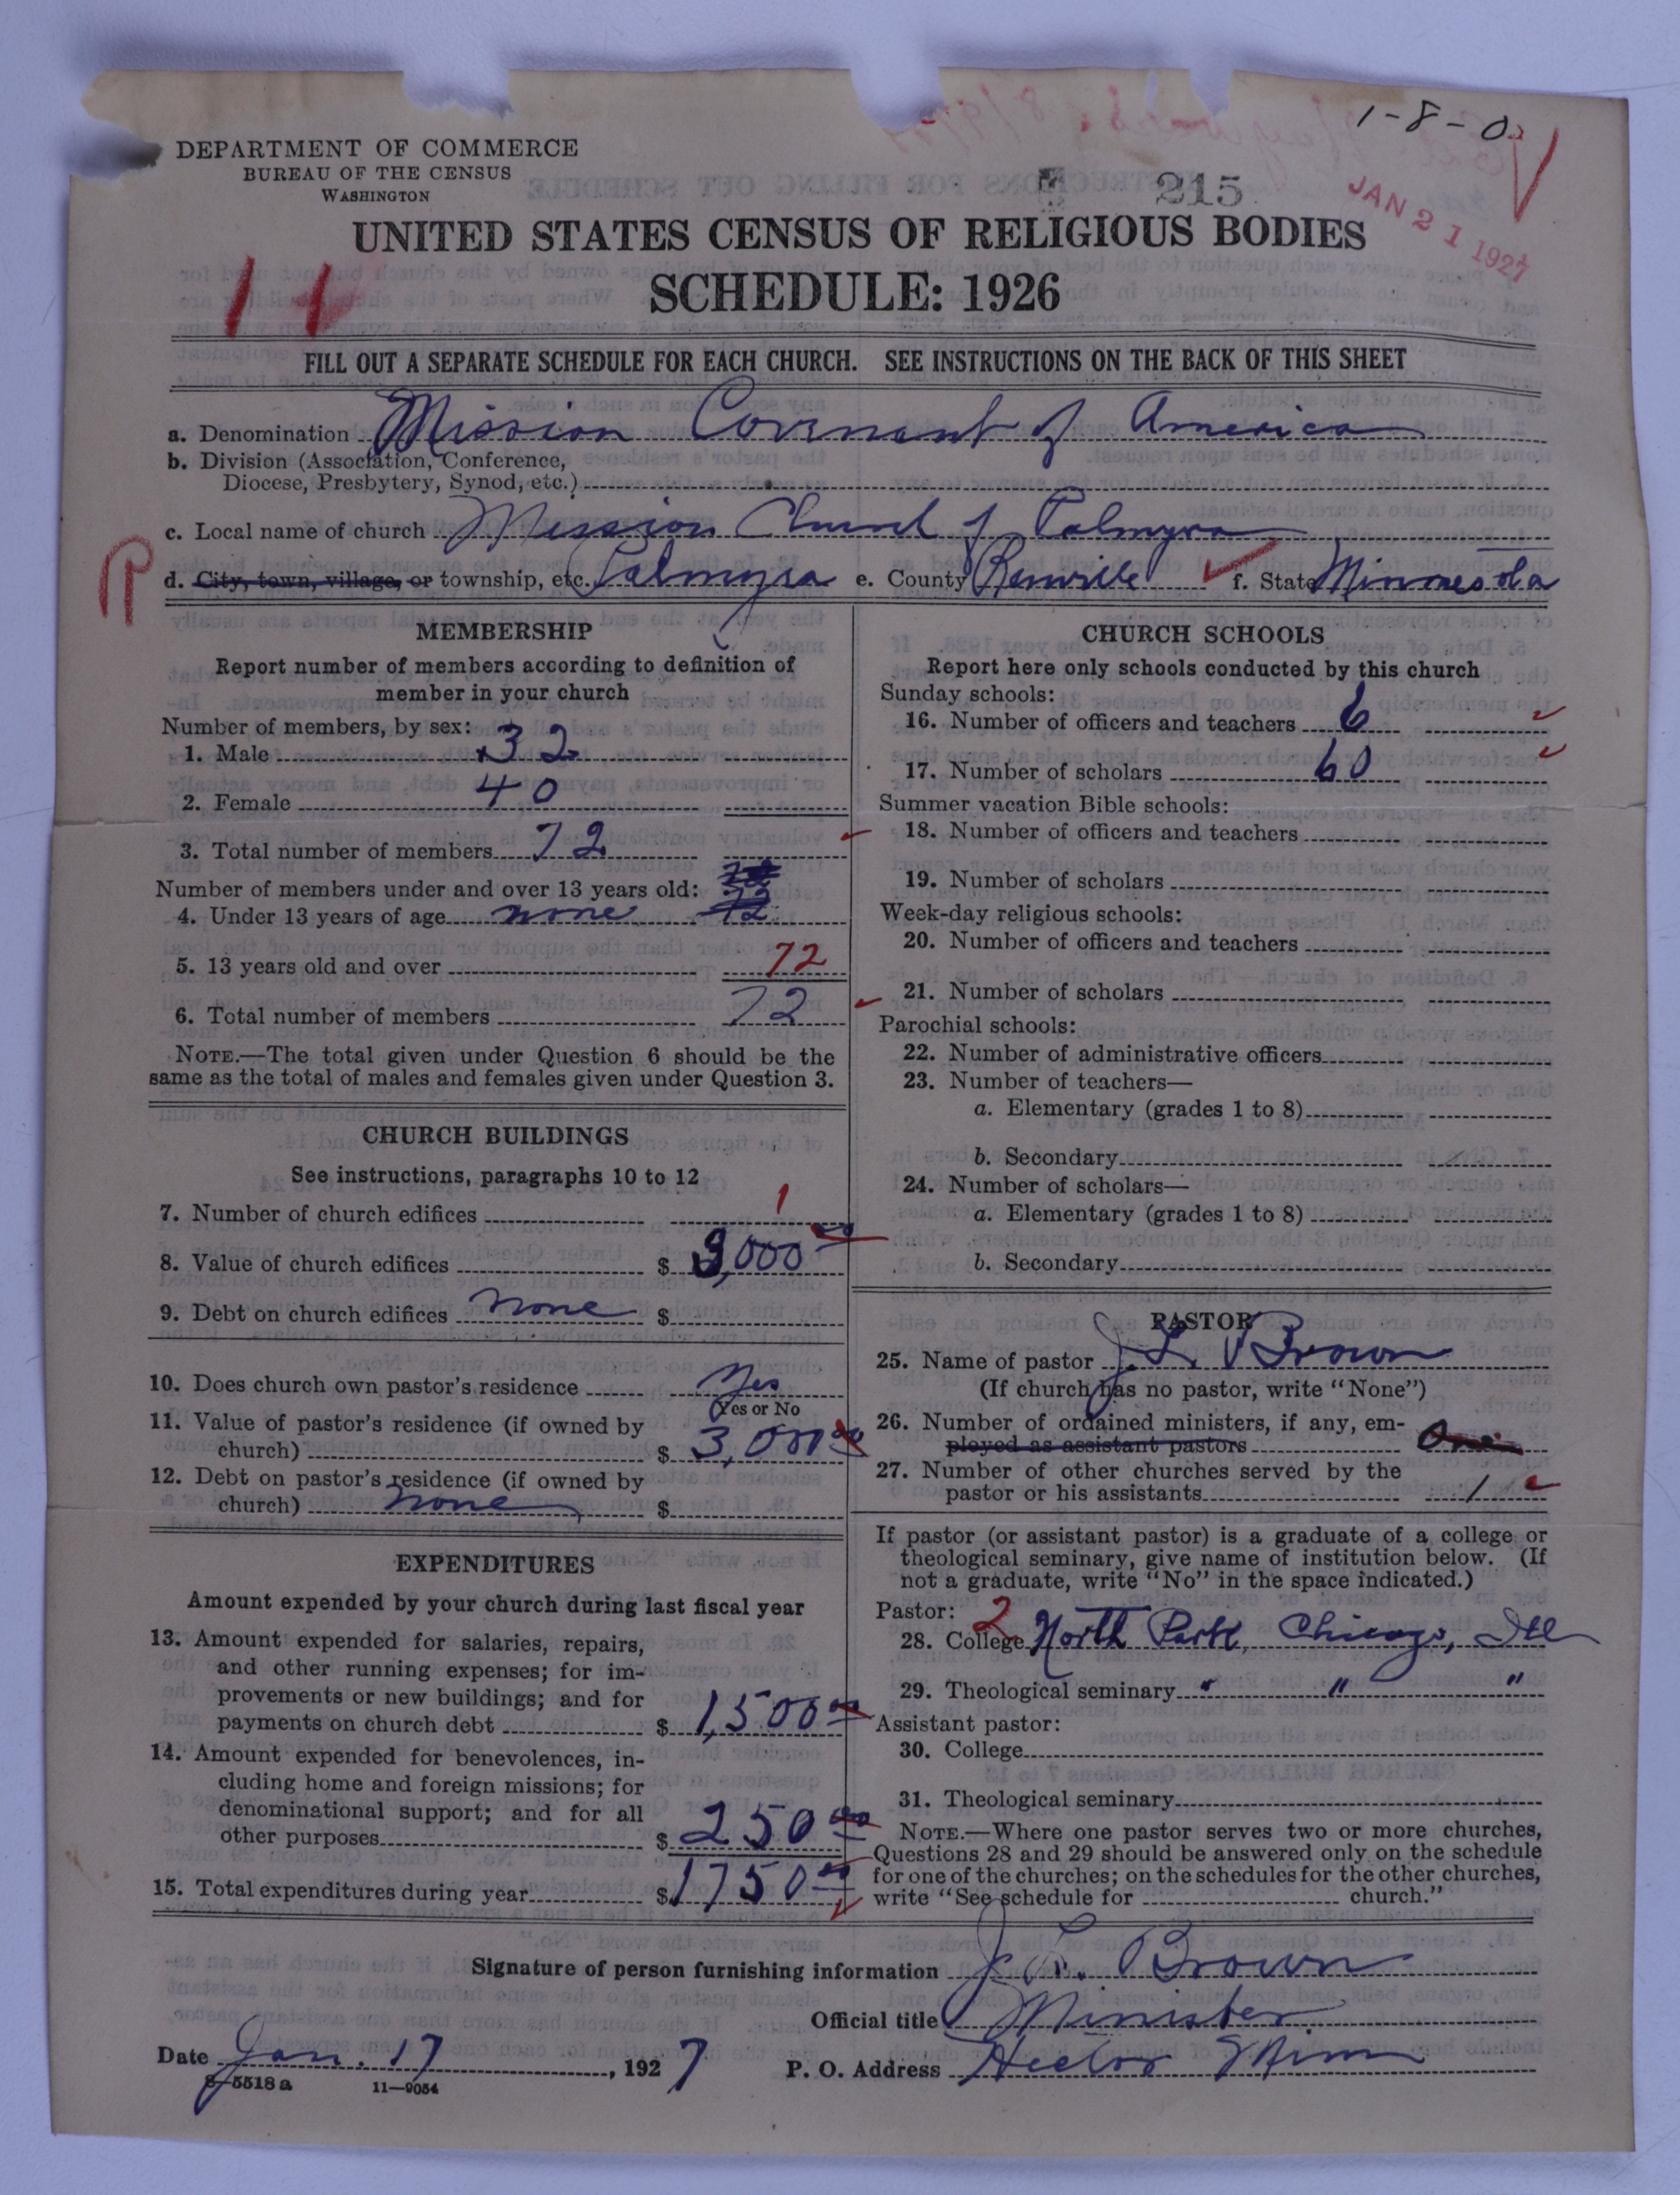 1-8-0
DEPARTMENT OF COMMERCE
BUREAU OF THE CENSUS
WASHINGTON
215
JAN 21 1927
UNITED STATES CENSUS OF RELIGIOUS BODIES
SCHEDULE: 1926
11
FILL OUT A SEPARATE SCHEDULE FOR EACH CHURCH. SEE INSTRUCTIONS ON THE BACK OF THIS SHEET
a. Denomination Mission Covenant of America
b. Division (Association, Conference,
Diocese, Presbytery, Synod, etc.)
c. Local name of church Mission Church of Palmyra
P
d. City, town, village, or township, etc. Palmyra e. County Renville f. State Minnesota
MEMBERSHIP
Report number of members according to definition of
member in your church
Number of members, by sex:
1. Male 32
2. Female 40
3. Total number of members 72
Number of members under and over 13 years old:
4. Under 13 years of age none 72
5. 13 years old and over 72
6. Total number of members 72
NOTE.—The total given under Question 6 should be the
same as the total of males and females given under Question 3.
CHURCH BUILDINGS
See instructions, paragraphs 10 to 12
7. Number of church edifices 1
8. Value of church edifices $ ,000 00
9. Debt on church edifices none $
10. Does church own pastor's residence Yes
Yes or No
11. Value of pastor's residence (if owned by
church) $ 3,000 00
12. Debt on pastor's residence (if owned by
church) none $
EXPENDITURES
Amount expended by your church during last fiscal year
13. Amount expended for salaries, repairs,
and other running expenses; for im-
provements or new buildings; and for
payments on church debt $ 1,500 00
14. Amount expended for benevolences, in-
cluding home and foreign missions; for
denominational support; and for all
other purposes $ 250 00
15. Total expenditures during year $ 1750 00
CHURCH SCHOOLS
Report here only schools conducted by this church
Sunday schools:
16. Number of officers and teachers 6
17. Number of scholars 60
Summer vacation Bible schools:
18. Number of officers and teachers
19. Number of scholars
Week-day religious schools:
20. Number of officers and teachers
21. Number of scholars
Parochial schools:
22. Number of administrative officers
23. Number of teachers—
a. Elementary (grades 1 to 8)
b. Secondary
24. Number of scholars—
a. Elementary (grades 1 to 8)
b. Secondary
PASTOR
25. Name of pastor J. L. Brown
(If church has no pastor, write "None")
26. Number of ordained ministers, if any, em-
ployed as assistant pastors One
27. Number of other churches served by the
pastor or his assistants 1
If pastor (or assistant pastor) is a graduate of a college or
theological seminary, give name of institution below. (If
not a graduate, write "No" in the space indicated.)
Pastor: 2
28. College North Park, Chicago, Ill
29. Theological seminary " " "
Assistant pastor:
30. College
31. Theological seminary
NOTE.—Where one pastor serves two or more churches,
Questions 28 and 29 should be answered only on the schedule
for one of the churches; on the schedules for the other churches,
write "See schedule for church."
Signature of person furnishing information J. L. Brown
Official title Minister
Date Jan. 17, 1927 P. O. Address Hector Minn
8-5518 a 11—9054